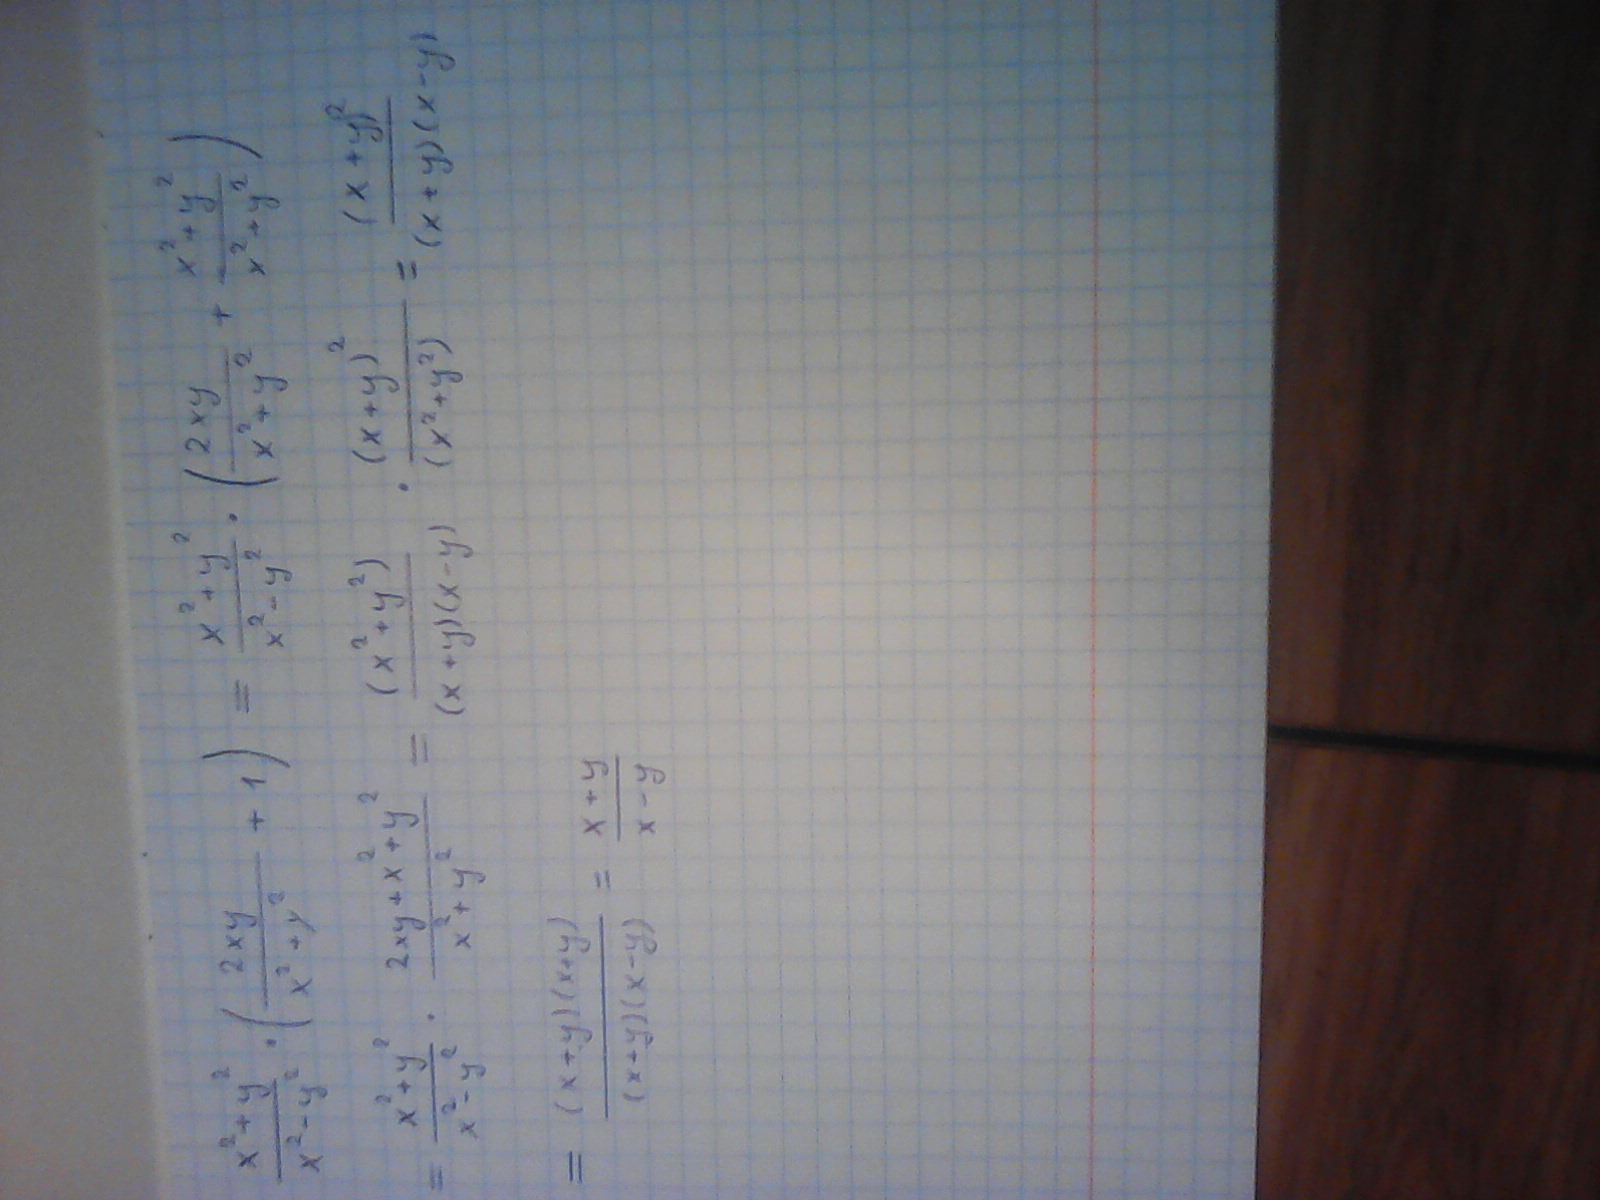 \frac{x^2+y^2}{x^2-y^2} \cdot \left( \frac{2xy}{x^2+y^2} + 1 \right) = \frac{x^2+y^2}{x^2-y^2} \cdot \left( \frac{2xy}{x^2+y^2} + \frac{x^2+y^2}{x^2+y^2} \right)
= \frac{x^2+y^2}{x^2-y^2} \cdot \frac{2xy+x^2+y^2}{x^2+y^2} = \frac{(x^2+y^2)}{(x+y)(x-y)} \cdot \frac{(x+y)^2}{(x^2+y^2)} = \frac{(x+y)^2}{(x+y)(x-y)}
= \frac{(x+y)(x+y)}{(x+y)(x-y)} = \frac{x+y}{x-y}